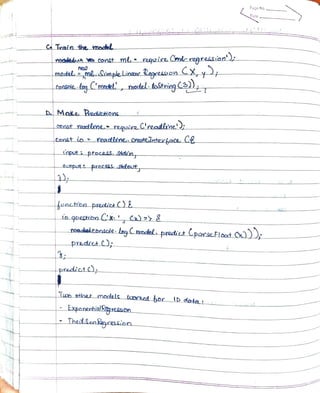 Page No.
Date
C. Train the model
const ml = require ('ml-regression');
model = new ml.SimpleLinearRegression (X, y);
console.log ('model', model.toString(3));
D. Make Predictions
const readline = require ('readline');
const io = readline.createInterface ({
input: process.stdin,
output: process.stdout,
});
function predict () {
io.question ('X: ', (x) => {
console.log (model.predict (parseFloat (x)));
predict ();
});
predict ();
Two other models worked for 1D data:
- ExponentialRegression
- TheilSenRegression